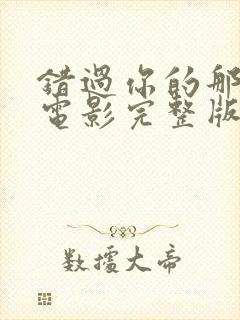 錯過你的那
電影完整版
數據大帝